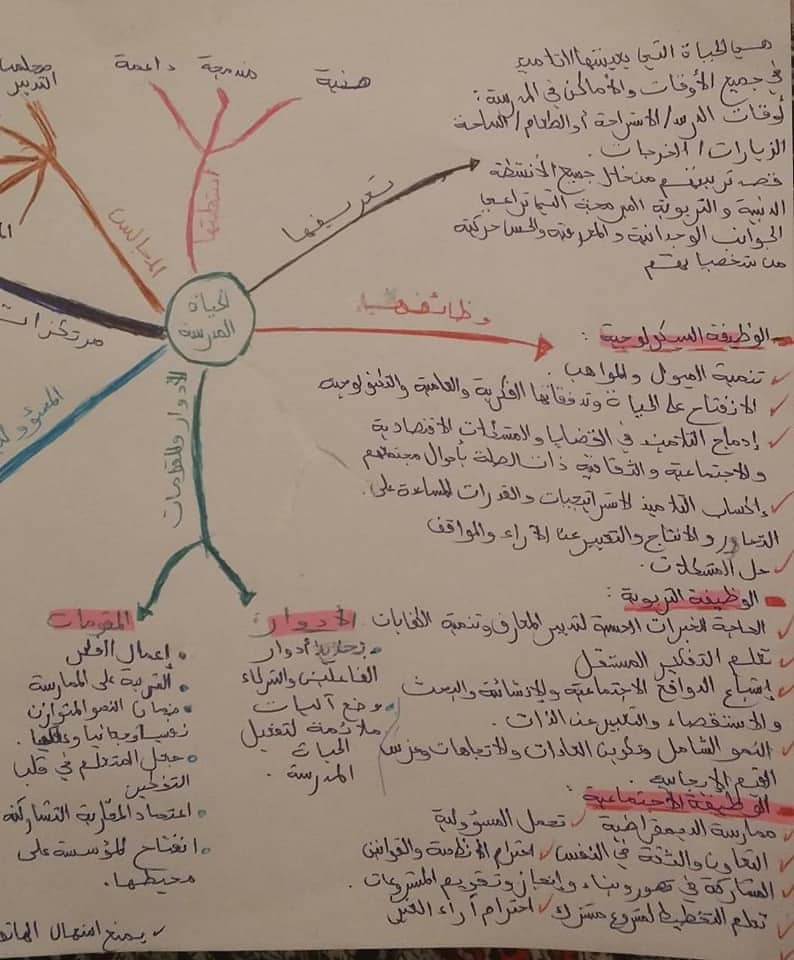 هي الحياة التي يعيشها التلاميذ
في جميع الأوقات والأماكن في المدرسة:
أوقات الدرس/الاستراحة أو الطعام/الساحة
الزيارات/الخرجات.
قصد تربيتهم من خلال جميع الأنشطة
الدينية و التربوية المبرمجة التي تراعي
الجوانب الوجدانية والمعرفية والحس حركية
من شخصياتهم
هنية
مندمجة
داعمة
مجلس
التدبير
أنشطتها
تعريفها
المجالس
الحياة
المدرسية
مرتكزات
وظائفها
الأدوار والمقومات
الوظيفة السيكولوجية:
تنمية الميول والمواهب.
الانفتاح على الحياة وتدفقاتها الفكرية والعلمية والتكنولوجية
إدماج التلاميذ في القضايا والمشكلات الاقتصادية
والاجتماعية والثقافية ذات الصلة بأحوال مجتمعاتهم
إكساب التلاميذ الاستراتيجيات والقدرات المساعدة على.
التحاور والانتاج والتعبير عن الآراء والمواقف
حل المشكلات.
الوظيفة التربوية:
الحاجة للخبرات الحسية لتدبير المعارف وتنمية الكفايات
تعلم التفكير المستقل
إشباع الدوافع الاجتماعية والإنشائية والبحث
والاستقصاء والتعبير عن الذات.
النمو الشامل وتكوين العادات والاتجاهات وغرس
القيم الإيجابية.
الوظيفة الاجتماعية:
ممارسة الديمقراطية ✓ تحمل المسؤولية
التعاون والثقة في النفس ✓ احترام الأنظمة والقوانين
المشاركة في تصور وبناء وإنجاز وتقويم المشروعات.
تعلم التخطيط لمشروع مشترك ✓ احترام آراء الغير
الأدوار
تحديد أدوار
الفاعلين والشركاء
وضع آليات
ملائمة لتفعيل
الحياة
المدرسة.
المقومات
إعمال الفكر
التربية على الممارسة
ضمان النمو المتوازن
نفسيا وجدانيا وعقليا.
جعل المتعلم في قلب
التفكير
اعتماد المقاربة التشاركية
انفتاح المؤسسة على
محيطها.
✓ يمنع استعمال